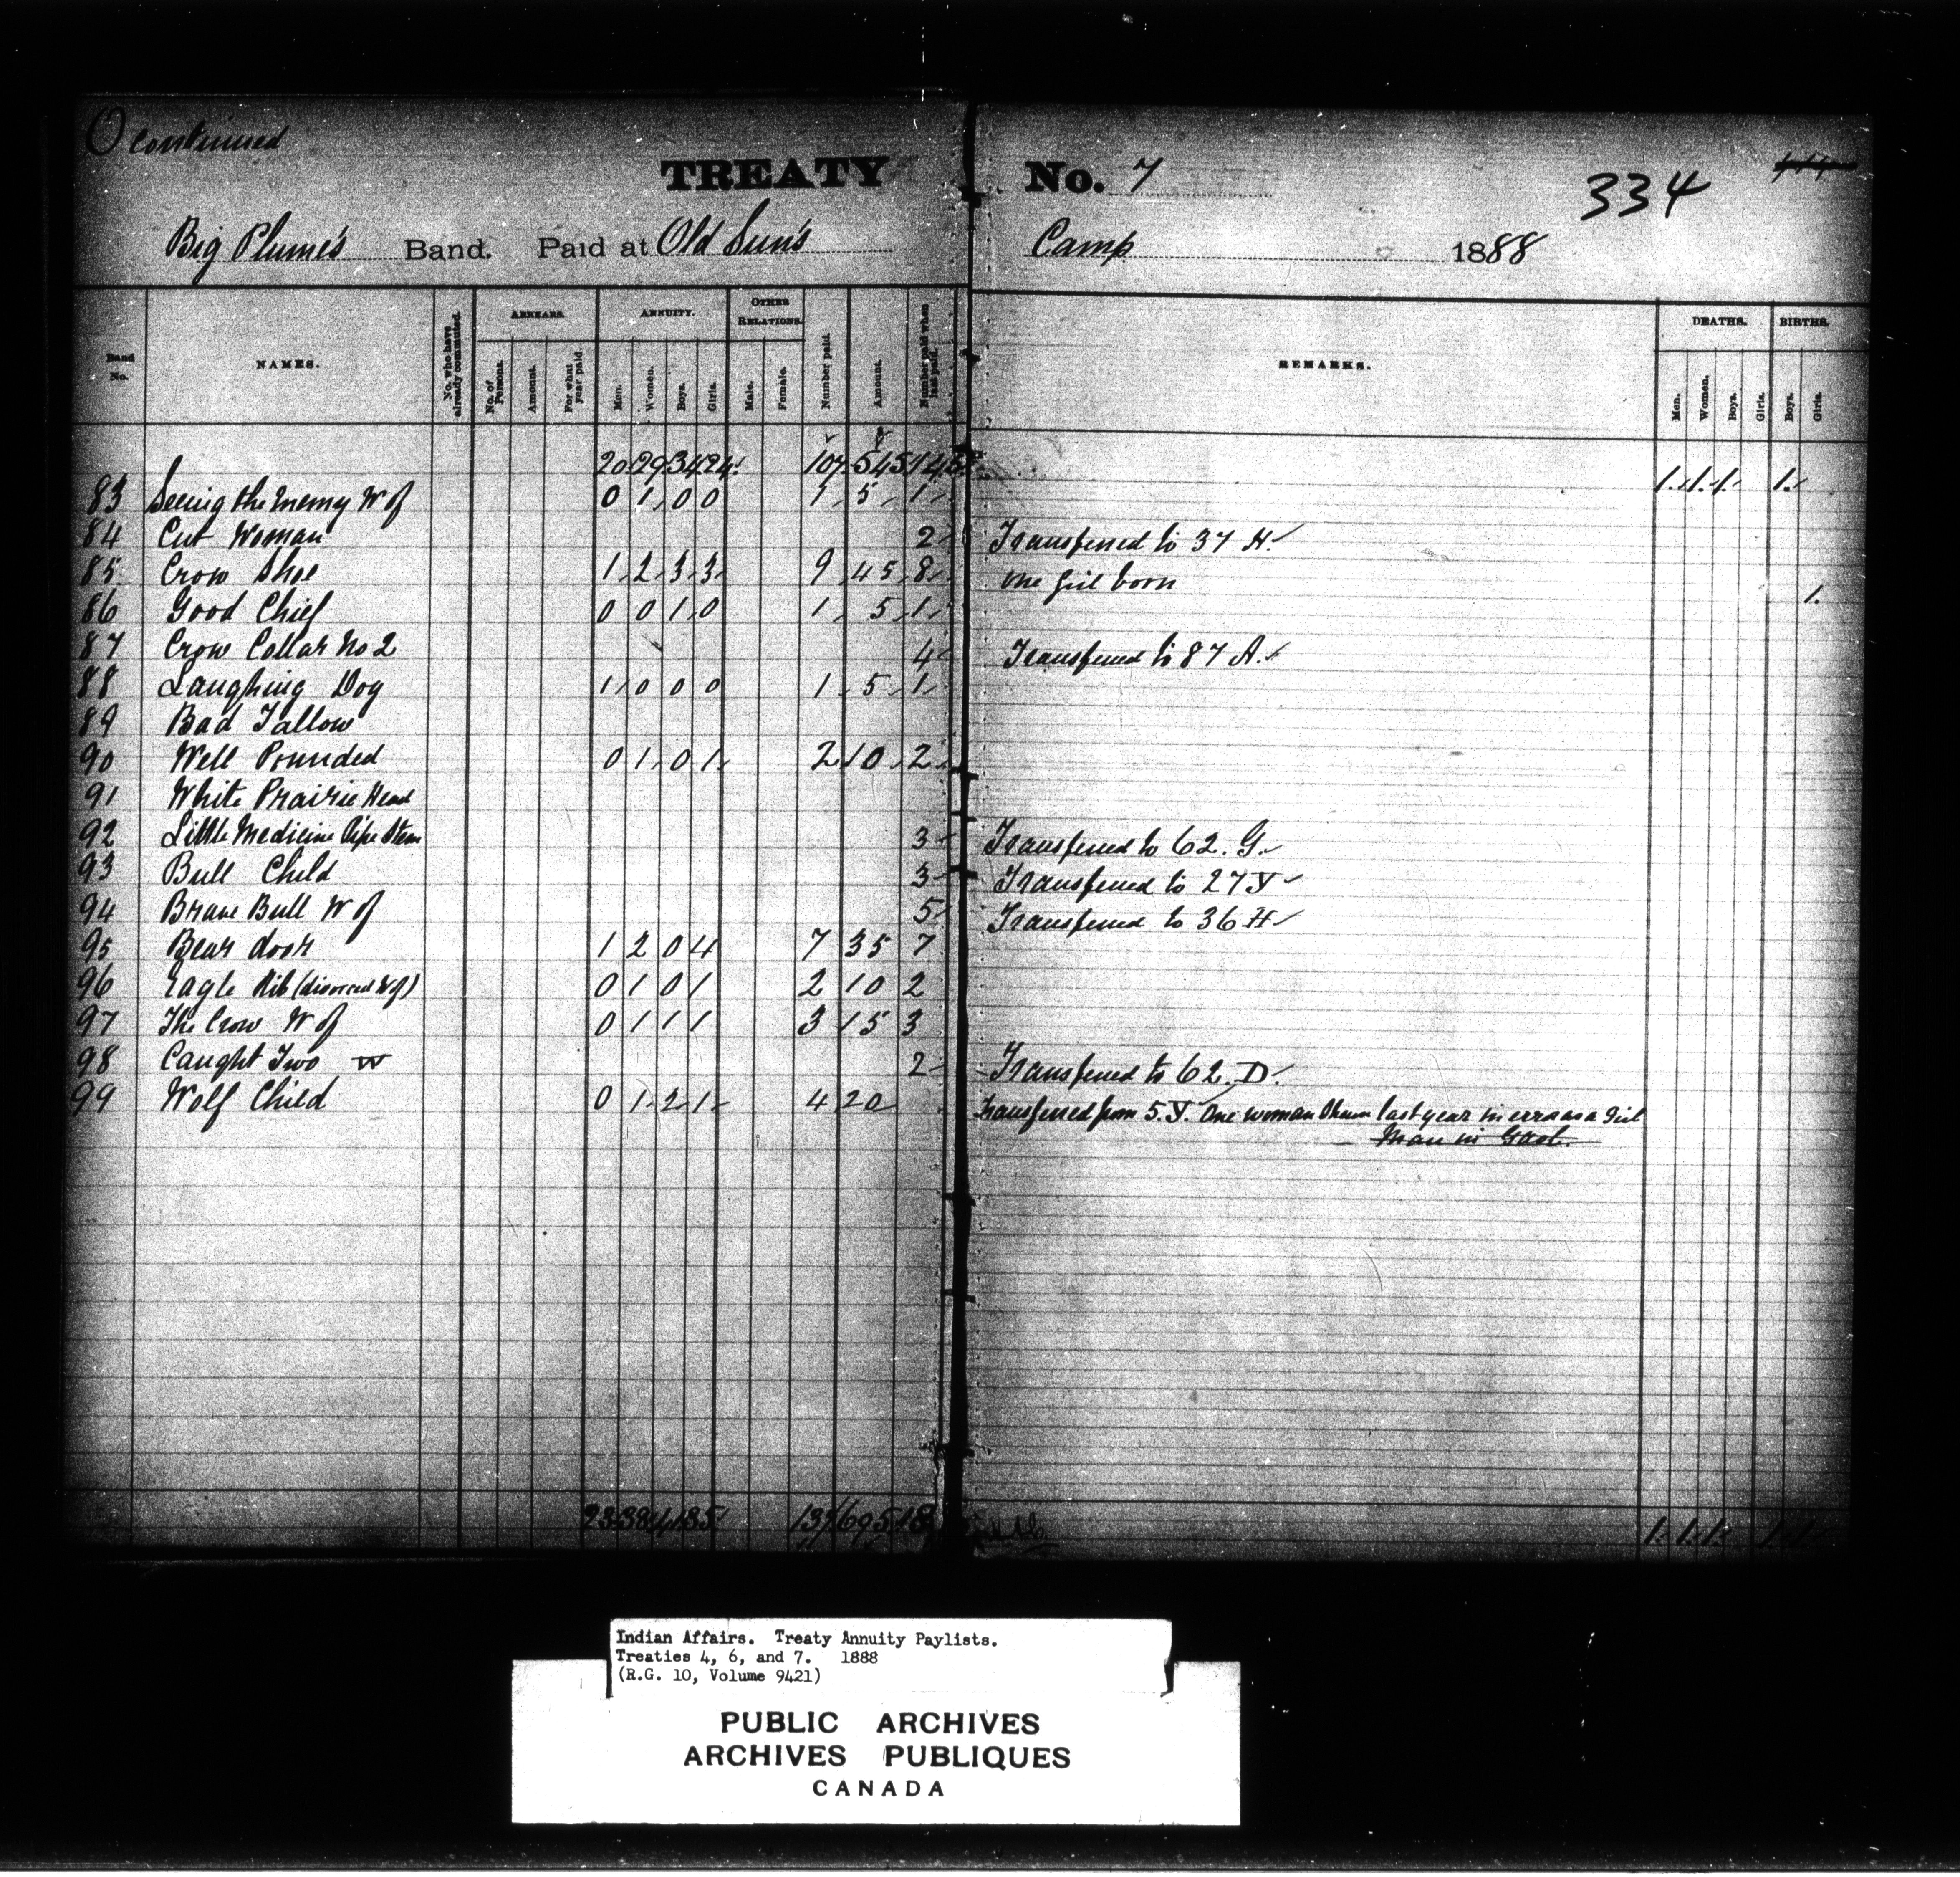 O continued
TREATY No. 7
334
Big Plume's Band. Paid at Old Sun's Camp 1888
Band No. NAMES. No. who have already commuted. ARREARS. No. of Persons. Amount. For what year paid. ANNUITY. Men. Women. Boys. Girls. OTHER RELATIONS. Male. Female. Number paid. Amount. Number paid when last paid. REMARKS. DEATHS. Men. Women. Boys. Girls. BIRTHS. Boys. Girls.
20 29 34 24 107 545 1 1 1 1
83 Seeing the Enemy W of 0 1 0 0 1 5 1
84 Cut Woman 2 Transferred to 37 H.
85 Crow Shoe 1 2 3 3 9 45 8 One girl born 1
86 Good Chief 0 0 1 0 1 5 1
87 Crow Collar No 2 4 Transferred to 87 A.
88 Laughing Dog 1 0 0 0 1 5 1
89 Bad Tallow
90 Well Pounded 0 1 0 1 2 10 2
91 White Prairie Head
92 Little Medicine Pipe Stem 3 Transferred to 62. G.
93 Bull Child 3 Transferred to 27 Y
94 Brave Bull W of 5 Transferred to 36 H
95 Bear door 1 2 0 4 7 35 7
96 Eagle Rib (divorced W of) 0 1 0 1 2 10 2
97 The Crow W of 0 1 1 1 3 15 3
98 Caught Two W 2 Transferred to 62. D.
99 Wolf Child 0 1 2 1 4 20 Transferred from 5. Y. One woman shown last year in error as a Girl
Man in Gaol.
23 38 41 35 137 695 1 1 1 1 1
Indian Affairs. Treaty Annuity Paylists.
Treaties 4, 6, and 7. 1888
(R.G. 10, Volume 9421)
PUBLIC ARCHIVES
ARCHIVES PUBLIQUES
CANADA